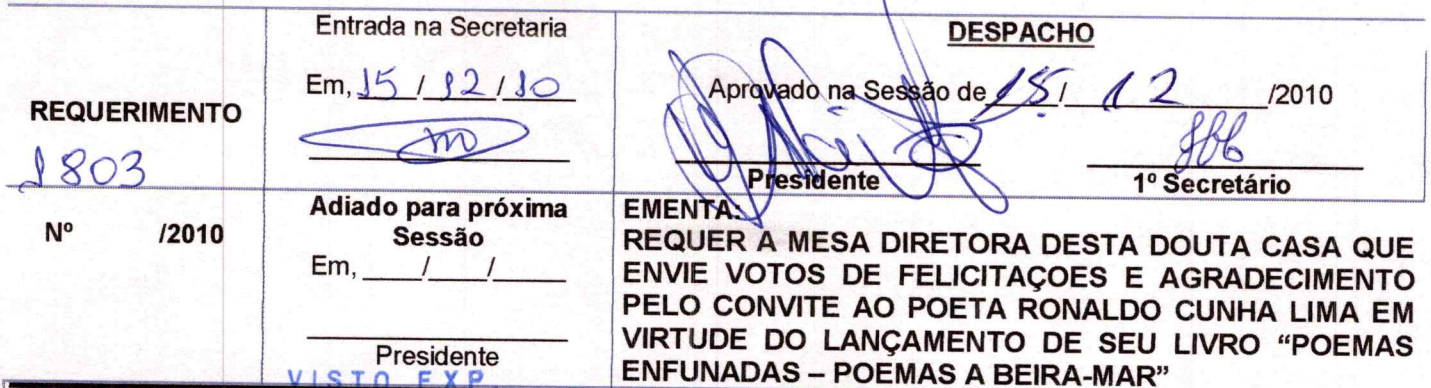 REQUERIMENTO
1803
Nº /2010
Entrada na Secretaria
Em, 15 / 12 / 10
Adiado para próxima
Sessão
Em, ____/____/____
Presidente
VISTO EXP
DESPACHO
Aprovado na Sessão de 15 / 12 /2010
Presidente
1º Secretário
EMENTA:
REQUER A MESA DIRETORA DESTA DOUTA CASA QUE
ENVIE VOTOS DE FELICITAÇOES E AGRADECIMENTO
PELO CONVITE AO POETA RONALDO CUNHA LIMA EM
VIRTUDE DO LANÇAMENTO DE SEU LIVRO “POEMAS
ENFUNADAS – POEMAS A BEIRA-MAR”